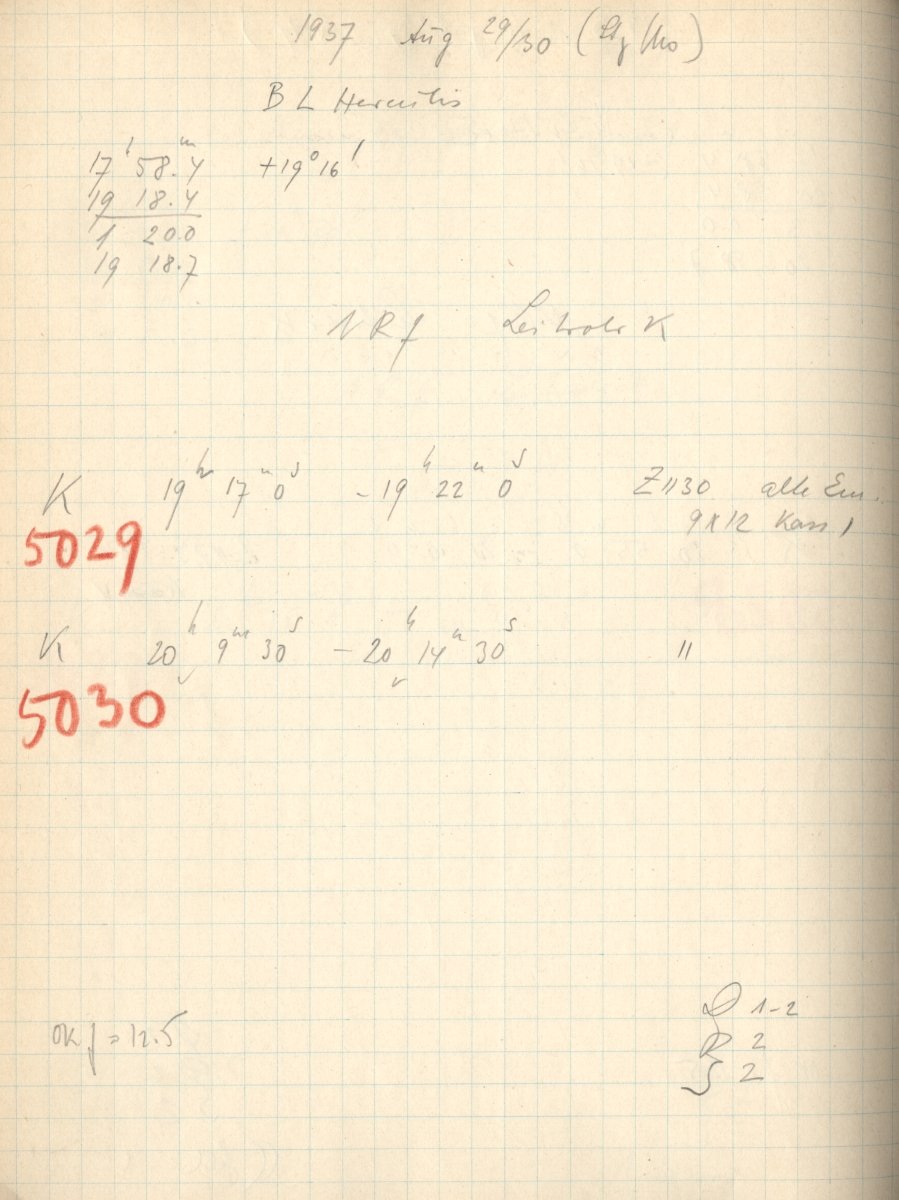 1937 Aug 29/30
BL Herculis
17ʰ 58.4ᵐ +19° 16'
19 18.4
1 20.0
19 18.7
NRf Leitrohr K
K 19ʰ 17ᵐ 0ˢ - 19ʰ 22ᵐ 0ˢ Z1130 alte Em.
5029 9x12 Kass 1
K 20ʰ 9ᵐ 30ˢ - 20ʰ 14ᵐ 30ˢ "
5030
OK f = 12.5
D 1-2
R 2
S 2